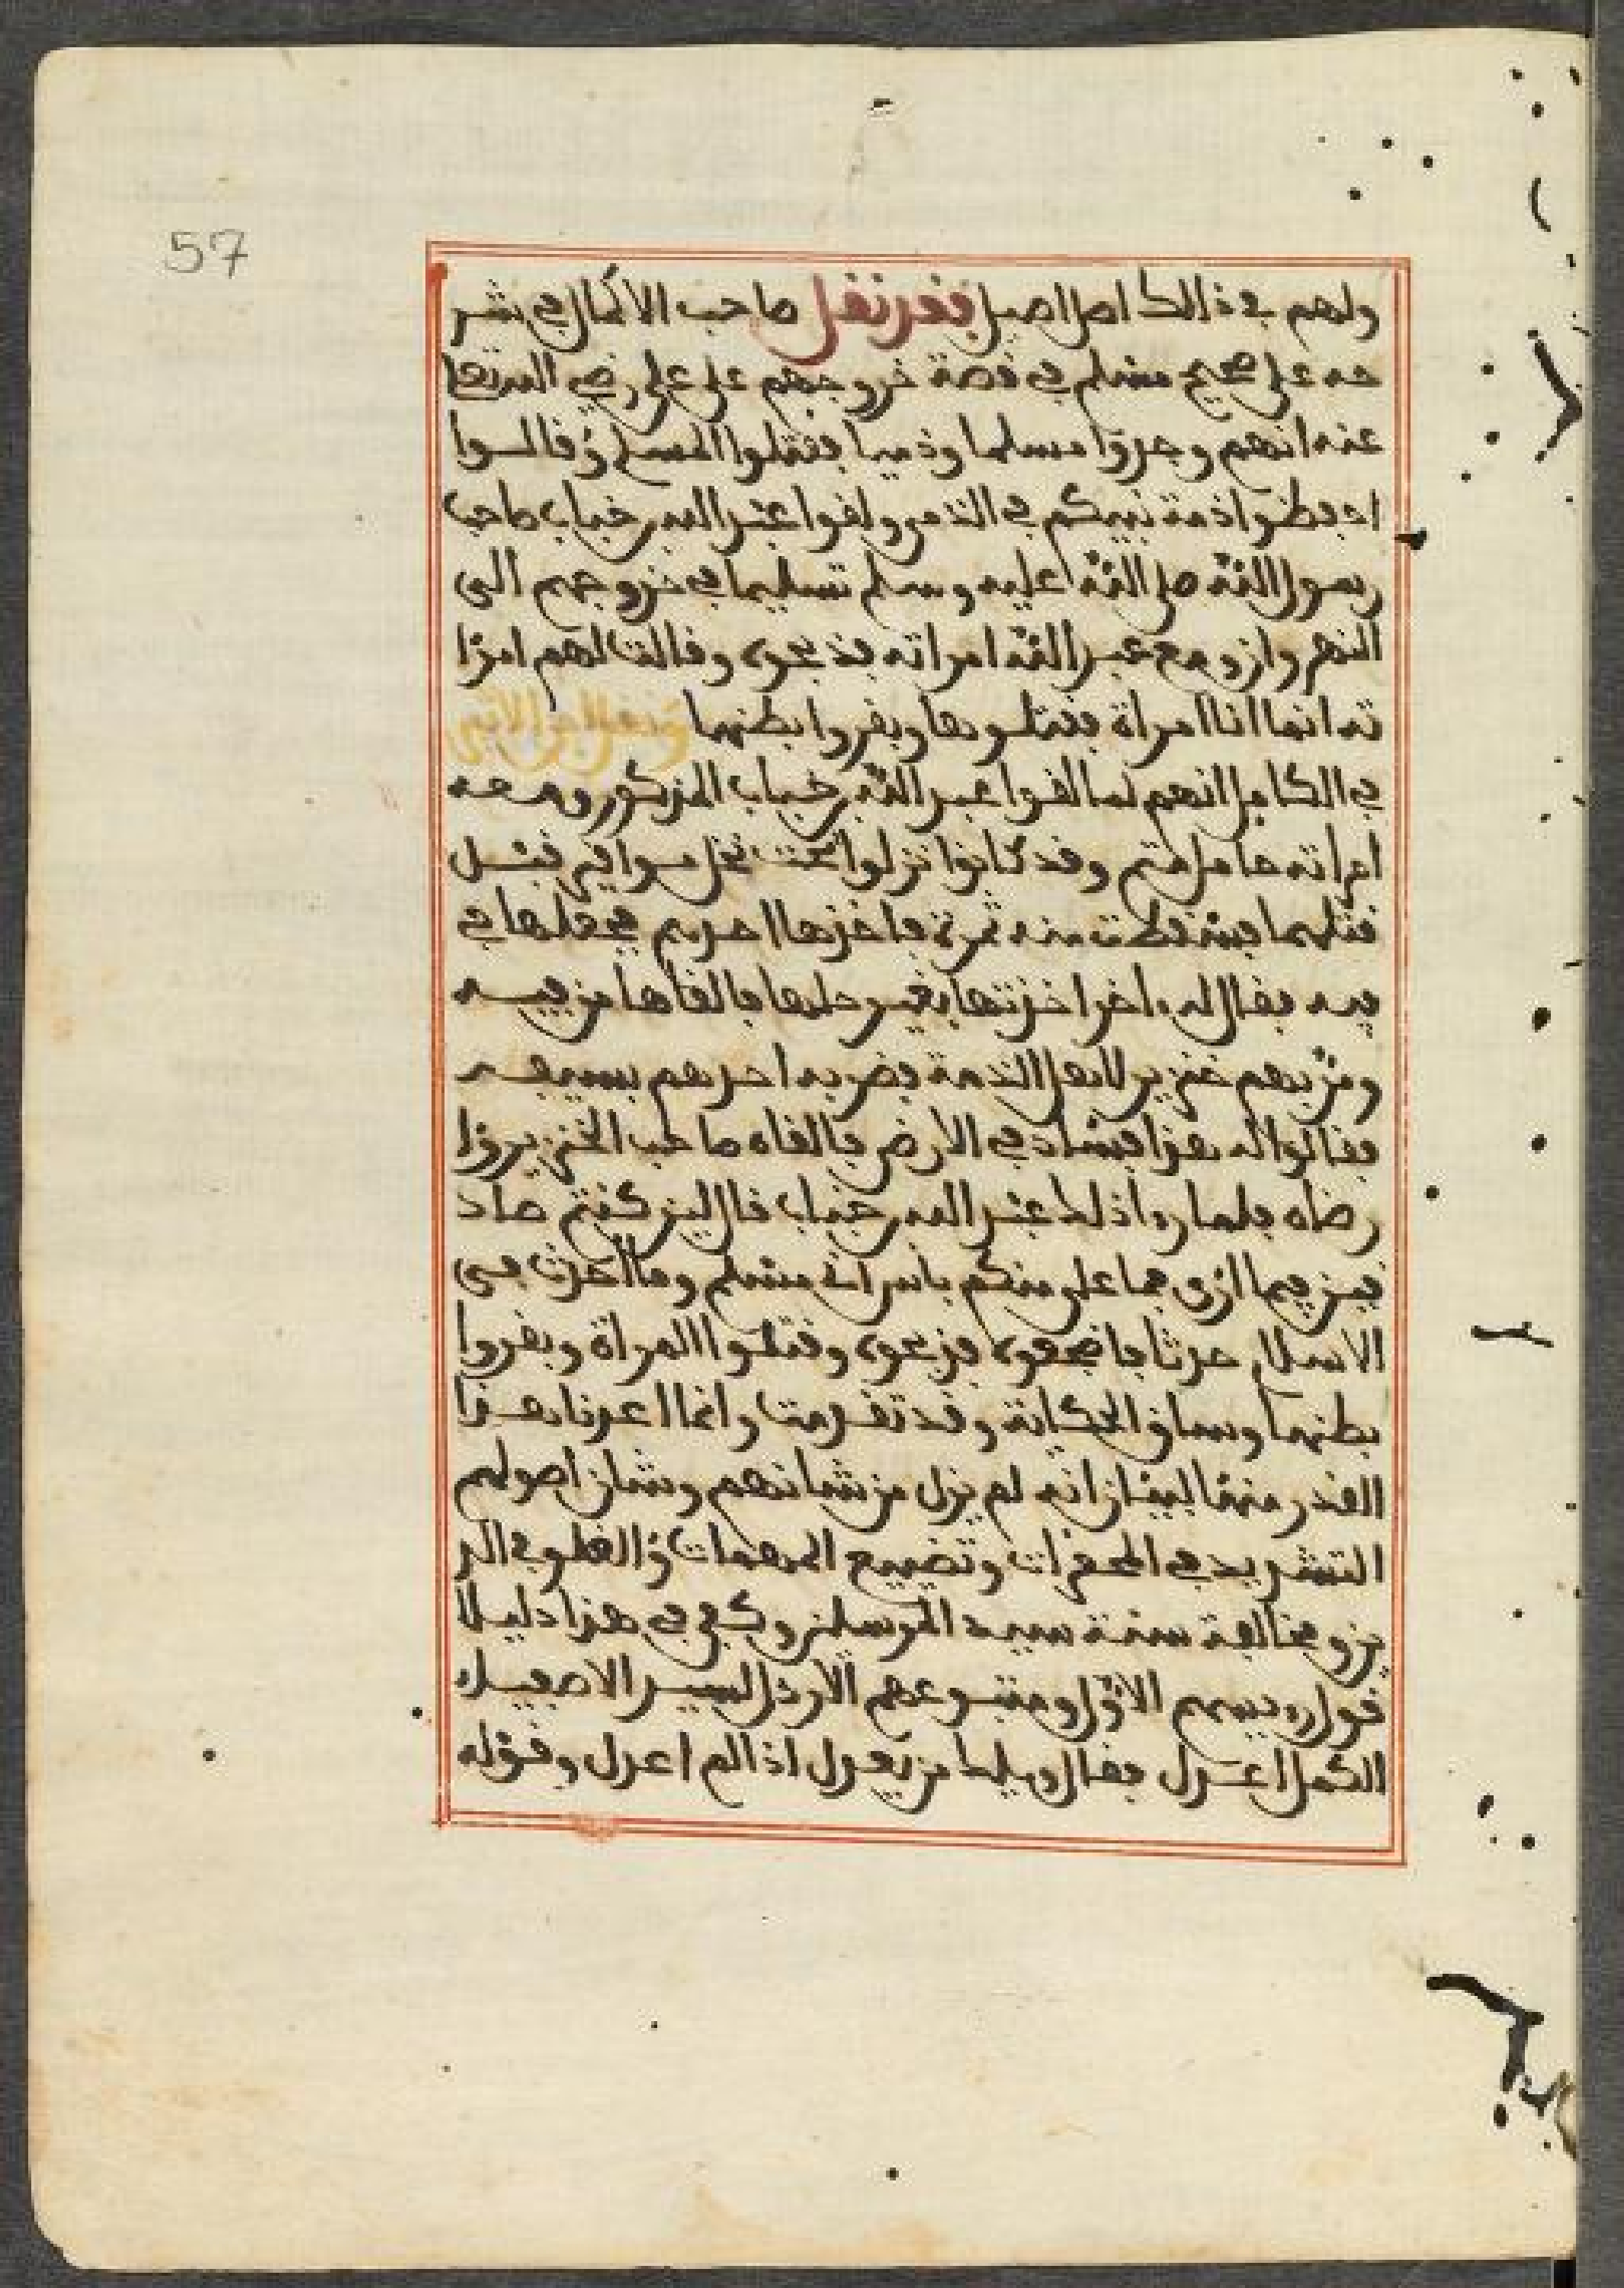 57
ولهم في ذالك اصل اصيل فقد نقل صاحب الاكمال في شر
حه على صحيح مسلم في قصة خروجهم على علي رضي الله تعا
عنه انهم وجدوا مسلما وذميا فقتلوا المسلم وقالوا
احفظوا ذمة نبيكم في الذمي ولقوا عبد الله بن خباب صاحب
رسول الله صلى الله عليه وسلم تسليما في خروجهم الى
النهروان ومع عبد الله امراته فذبحوه وقالت لهم امرا
ته انما انا امراة فقتلوها وبقروا بطنها ونقل ابن الاثير
في الكامل انهم لما لقوا عبد الله بن خباب المذكور ومعه
امراته حامل متم وقد كانوا نزلوا تحت نخل مواقر قبل
قتلهما فسقطت منه تمرة فاخذها احدهم فجعلها في
فيه فقال له ءاخر اخذتها بغير حلها فالقاها من فيه
ومر بهم خنزير لاهل الذمة فضربه احدهم بسيفه
فقالوا له هذا فساد في الارض فالقاه صاحب الخنزير وا
رضاه فلما روا ذلك عبد الله بن خباب قال لين كنتم صاد
قين فيما ارى فما علي منكم باس اني مسلم وما احدثت في
الاسلام حدثا فاضجعوه فذبحوه وقتلوا المراة وبقروا
بطنها وساق الحكاية وقد تقدمت وانما اعدنا هذا
القدر منها لبيان انه لم يزل من شانهم وشان اصولهم
التشديد في المحقرات وتضييع المهمات والغلو في الد
ين ومخالفة سنة سيد المرسلين وكفى في هذا دليلا
قول رءيسهم الاول ومتبوعهم الارذل لسيد الاصفياء
الكمل اعدل فقال ويلك من يعدل اذا لم اعدل وقوله